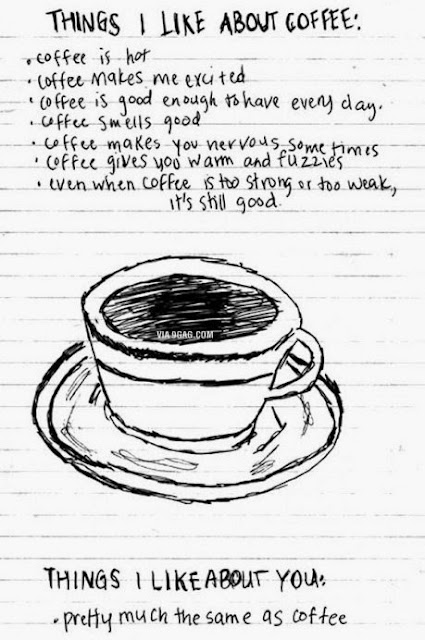 THINGS I LIKE ABOUT COFFEE:
• coffee is hot
• coffee makes me excited
• coffee is good enough to have every day.
• coffee smells good
• coffee makes you nervous sometimes
• coffee gives you warm and fuzzies
• even when coffee is too strong or too weak,
it's still good.
VIA 9GAG.COM
THINGS I LIKE ABOUT YOU:
• pretty much the same as coffee